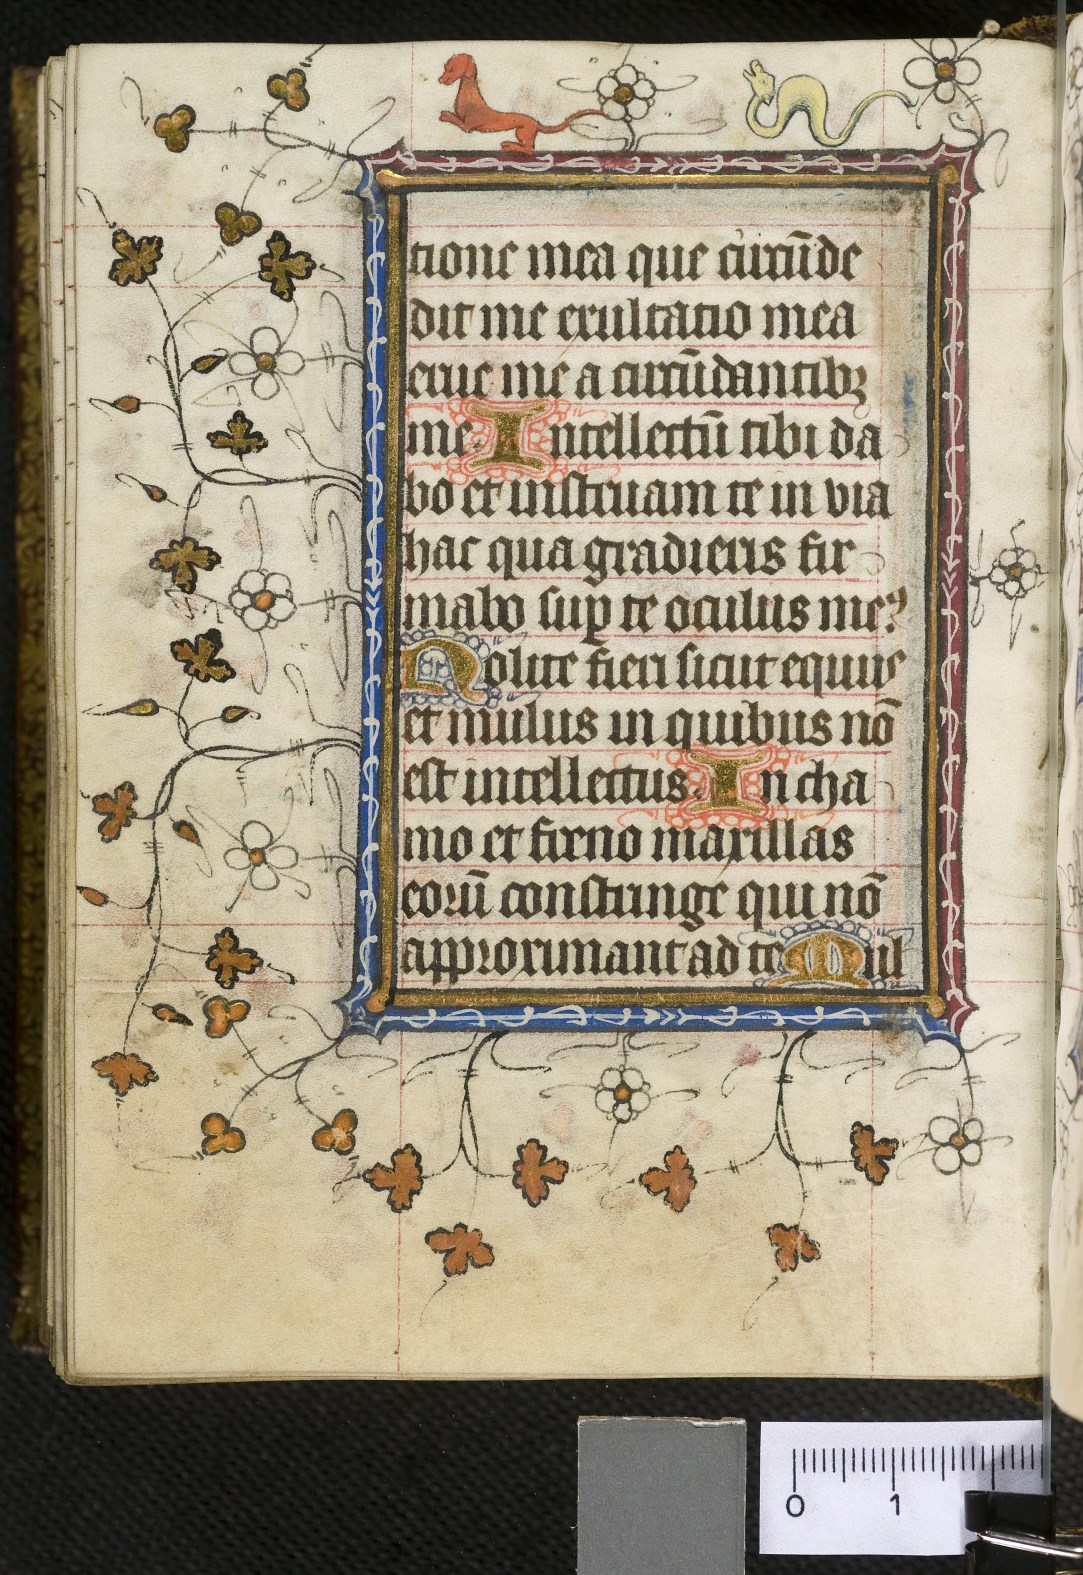 tione mea que circūde
dit me exultatio mea
erue me a circūdantibꝫ
me. Intellectū tibi da
bo et instruam te in via
hac qua gradieris fir
mabo suꝑ te oculus meꝰ
Nolite fieri sicut equus
et mulus in quibus nō
est intellectus. In cha
mo et freno maxillas
eorū constringe qui nō
approximant ad te Mul
0 1